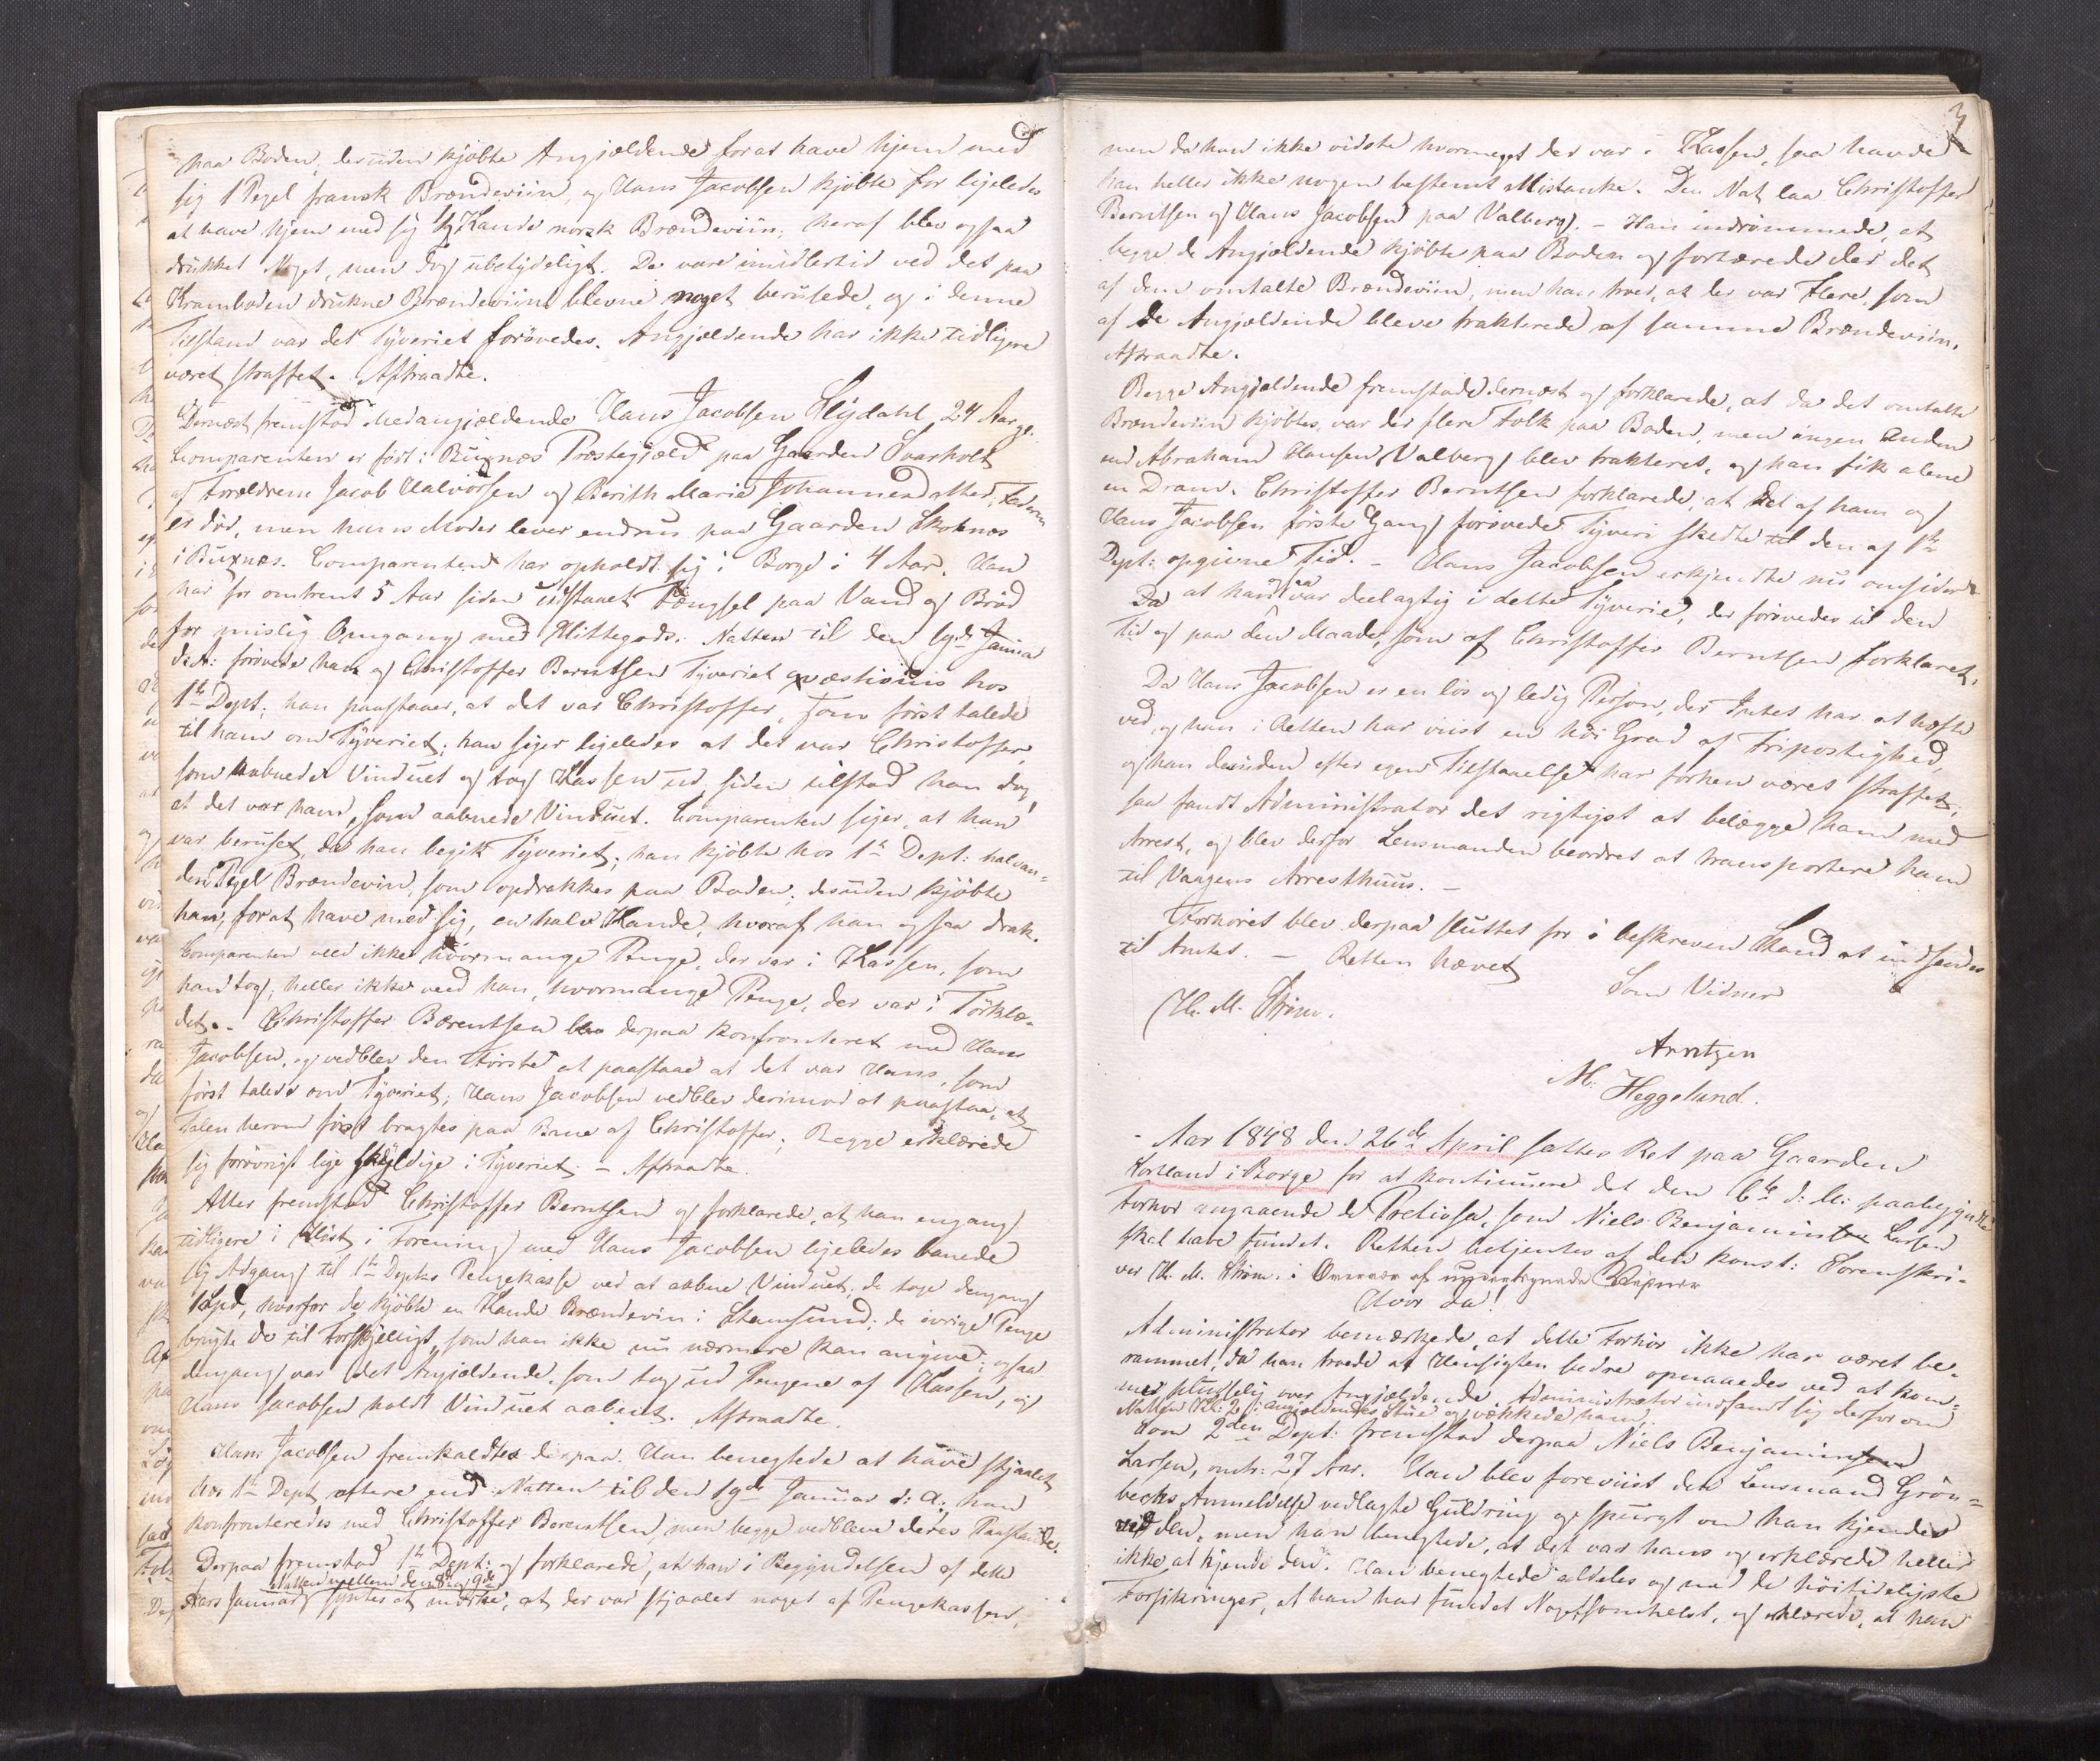 paa Boden, desuden kjøbte Angjældende for at have hjem med
sig 1 Pegel fransk Brændeviin, og Hans Jacobsen kjøbte for ligeledes
at have hjem med sig ½ Kande norsk Brændeviin; heraf blev ogsaa
drukket Noget, men dog ubetydeligt. De vare imidlertid ved det paa
Kramboden drukne Brændeviin blevne noget berusede, og i denne
Tilstand var det Tyveriet forøvedes. Angjældende har ikke tidligere
været straffet. Aftraadte.
Dernæst fremstod Medangjældende Hans Jacobsen Slydahl, 24 Aar gl.
Comparenten er født i Buxnæs Præstegjæld paa Gaarden Svarholt
af Forældrene Jacob Halvorsen og Berith Marie Johannesdatter; Faderen
er død, men hans Moder lever endnu paa Gaarden Skoknæs
i Buxnæs. Comparenten har opholdt sig i Borge i 4 Aar. Han
har for omtrent 5 Aar siden udstaaet Fængsel paa Vand og Brød
for mislig Omgang med Hittegods. Natten til den 19de Januar
d: A: forøvede han og Christoffer Berntsen Tyveriet qvæstionis hos
1te Dept; han paastaaer, at det var Christoffer, som først talede
til ham om Tyveriet; han siger ligeledes at det var Christoffer,
som aabnede Vinduet og tog Kassen ud, siden tilstod han dog,
at det var ham, som aabnede Vinduet. Comparenten siger, at han
var beruset, da han begik Tyveriet; han kjøbte hos 1te Dept: halvan-
den Pegel Brændeviin, som opdrakkes paa Boden; desuden kjøbte
han, for at have med sig, en halv Kande, hvoraf han ogsaa drak.
Comparenten veed ikke hvormange Penge, der var i Kassen, som
han tog; heller ikke veed han, hvormange Penge, der var i Tørklæ-
det. - Christoffer Bærentsen blev derpaa konfronteret med Hans
Jacobsen, og vedblev den Første at paastaae at det var Hans, som
først talede om Tyveriet; Hans Jacobsen vedblev derimod at paastaa, at
Talen herom først bragtes paa Bane af Christoffer; Begge erklærede
sig forøvrigt lige skyldige i Tyveriet. - Aftraadte.
Atter fremstod Christoffer Berntsen og forklarede, at han engang
tidligere i Høst i Forening med Hans Jacobsen ligeledes banede
sig Adgang til 1te Depts Pengekasse ved at aabne Vinduet; de toge dengang
1 Spd, hvorfor de kjøbte en Kande Brændeviin i Stamsund; de øvrige Penge
brugte de til Forskjelligt, som han ikke nu nærmere kan angive; ogsaa
dengang var det Angjældende, som tog ud Pengene af Kassen, og
Hans Jacobsen holdt Vinduet aabent. Aftraadte.
Hans Jacobsen fremkaldtes derpaa. Han benegtede at have stjaalet
hos 1te Dept oftere end Natten til den 19de Januar d: A; han
konfronteredes med Christoffer Berentsen, men begge vedbleve deres Paastande.
Derpaa fremstod 1te Dept: og forklarede, at han i Begyndelsen af dette
Natten mellem den 8de og 9de
Aars Januar syntes at mærke, at der var stjaalet noget af Pengekassen,
3
men da han ikke vidste hvormeget der var i Kassen, saa havde
han heller ikke nogen bestemt Mistanke. Den Nat laa Christoffer
Berntsen og Hans Jacobsen paa Valberg. - Han indrømmede, at
begge de Angjældende kjøbte paa Boden og fortærede der det
af dem omtalte Brændeviin, men han troer, at der var Flere, som
af de Angjældende bleve trakterede af samme Brændeviin.
Aftraadte.
Begge Angjældende fremstode dernæst og forklarede, at da det omtalte
Brændeviin kjøbtes, var der flere Folk paa Boden, men ingen Anden
end Abraham Hansen Valberg blev trakteret, og han fik alene
en Dram. Christoffer Berntsen forklarede, at det af ham og
Hans Jacobsen første Gang forøvede Tyveri skedte til den af 1te
Dept: opgivne Tid. - Hans Jacobsen erkjendte nu omsider
at han ogsaa var deelagtig i dette Tyverie, der forøvedes til den
Tid og paa den Maade, som af Christoffer Berntsen forklaret.
Da Hans Jacobsen er en løs og ledig Person, der Intet har at hæfte
ved, og han i Retten har viist en høi Grad af Fripostighed,
og han desuden efter egen Tilstaaelse har forhen været straffet,
saa fandt Administrator det rigtigst at belægge ham med
Arrest, og blev derfor Lensmanden beordret at transportere ham
til Vaagens Arresthuus. -
Forhøret blev derpaa sluttet for i beskreven Stand at indsendes
til Amtet. - Retten hævet
H. M. Strøm. Som Vidner
Arntzen
M: Heggelund.
Aar 1848 den 26de April sattes Ret paa Gaarden
Kortland i Borge for at kontinuere det den 6te d: M: paabegyndte
Forhør angaaende de Pretiosa, som Niels Benjaminsen Larsen
skal have fundet. Retten betjentes af den konst: Sorenskri-
ver H. M. Strøm i Overvær af undertegnede Vidner
Hvor da!
Administrator bemærkede, at dette Forhør ikke har været be-
rammet, da han troede at Hensigten bedre opnaaedes ved at kom-
me pludselig over Angjældende. Administrator indfandt sig derfor om
Natten Kl: 2 i Angjældendes Stue og vækkede ham.
Som 2den Dept: fremstod derpaa Niels Benjaminsen
Larsen, omtr: 27 Aar. Han blev foreviist den Lensmand Grøn-
becks Anmeldelse vedlagte Guldring og spurgt om han kjendes
ved den, men han benegtede, at det var hans og erklærede heller
ikke at kjende den. Han benegtede aldeles og med de høitideligste
Forsikringer, at han har fundet Nogetsomhelst, og erklærede, at han